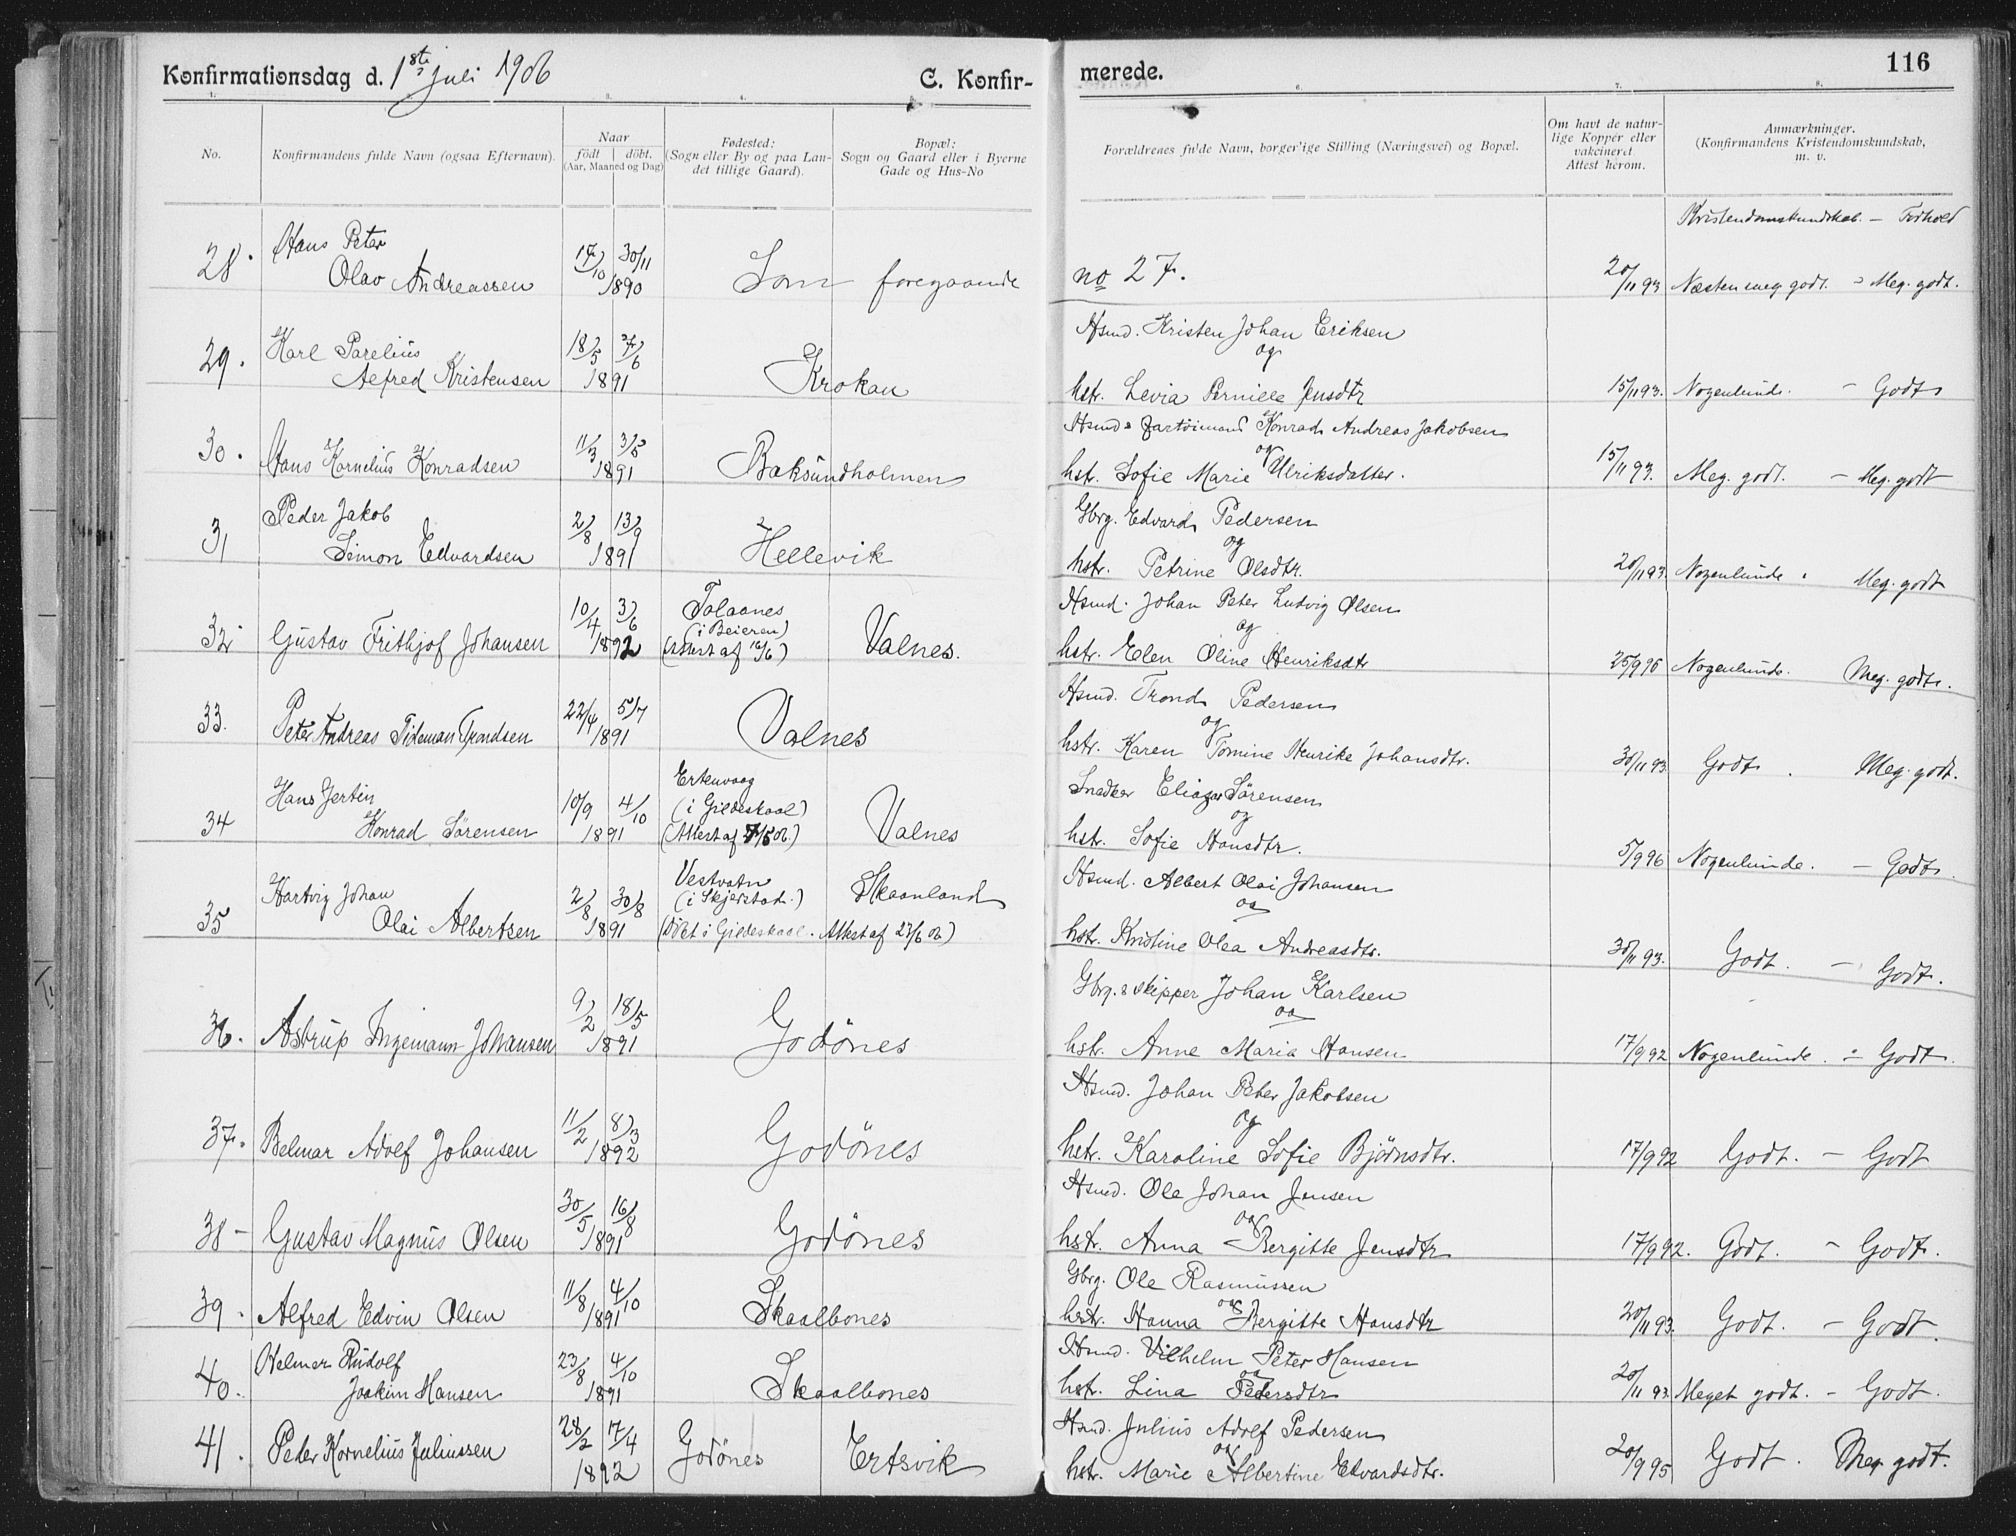 Konfirmationsdag d. 1ste juli 1906 C. Konfirmerede. 116
1. 3. 4. 6. 7. 8.
No. Konfirmandens fulde Navn (ogsaa Efternavn). Naar født døbt. (Aar, Maaned og Dag) Fødested: (Sogn eller By og paa Landet tillige Gaard). Bopæl: Sogn og Gaard eller i Byerne Gade og Hus-No
Forældrenes fulde Navn, borgerlige Stilling (Næringsvei) og Bopæl. Om havt de naturlige Kopper eller vakcineret Attest herom. Anmærkninger. (Konfirmandens Kristendomskundskab, m. v.
Kristendomskundskab. – Forhold
28. Hans Peter
Olav Andreassen 17/10 30/11 1890 Som foregaaende no 27. 20/11 93 Næsten meg. godt. – Meg. godt.
Hsmd. Kristen Johan Eriksen
og
29. Karl Parelius
Alfred Kristensen 18/5 7/6 1891 Krokan hstr. Levia Pernille Jensdtr 15/11 93. Nogenlunde. – Godt
Hsmd & Fartøimand Konrad Andreas Jakobsen
og
30. Hans Kornelius Konradsen 11/3 3/5 1891 Baksundholmen hstr. Sofie Marie Ulriksdatter. 15/11 93. Meg. godt. – Meg. godt
Gbrg. Edvard Pedersen
og
31 Peder Jakob
Simon Edvardsen 2/8 13/9 1891 Hellevik hstr. Petrine Olsdtr. 20/11 93. Nogenlunde . Meg. godt
Hsmd. Johan Peter Ludvig Olsen
og
32. Gustav Frithjof Johansen 10/4 3/6 1892 Tolaanes
(i Beieren)
(Attest af 16/6) Valnes. hstr. Elen Oline Henriksdtr 25/9 96 Nogenlunde. Meg. godt.
Hsmd. Trond Pedersen
og
33. Peter Andreas Tideman Trondsen 22/4 5/7 1891 Valnes hstr. Karen Tomine Henrike Johansdtr. 30/11 93 Godt . Meg. godt.
Snedker Eliazar Sørensen
og
34 Hans Jertin
Konrad Sørensen 10/9 4/10 1891 Ertenvaag
(i Gildeskaal)
(Attest af 7/5 06.) Valnes hstr. Sofie Hansdtr. 5/9 96 Nogenlunde. – Godt.
Hsmd. Albert Olai Johansen
og
35 Hartvig Johan
Olai Albertsen 2/8 30/8 1891 Vestvatn
(i Skjerstad.) Skaanland
(Døbt i Gildeskaal. Attest af 23/6 06) hstr. Kristine Olea Andreasdtr. 30/11 93. Godt. – Godt.
Gbrg. & skipper Johan Karlsen
og
36. Astrup Ingemann Johansen 9/2 18/5 1891 Godønes hstr. Anne Maria Hansen 17/9 92 Nogenlunde. – Godt.
Hsmd. Johan Peter Jakobsen
og
37. Belmar Adolf Johansen 11/2 8/3 1892 Godønes hstr. Karoline Sofie Bjørnsdtr. 17/9 92 Godt. – Godt
Hsmd. Ole Johan Jensen
og
38 – Gustav Magnus Olsen 30/5 16/8 1891 Godønes hstr. Anna Bergitte Jensdtr 17/9 92. Godt. – Godt.
Gbrg. Ole Rasmussen
og
39. Alfred Edvin Olsen 11/8 4/10 1891 Skaalbones hstr. Hanna Bergitte Hansdtr 20/11 93. Godt. – Godt.
Hsmd. Vilhelm Peter Hansen
og
40. Helmer Rudolf
Joakim Hansen 23/8 4/10 1891 Skaalbones hst. Lina Pedersdtr 20/11 93. Meget godt. – Godt.
Hsmd. Julius Adolf Pedersen
og
41. Peter Kornelius Juliussen 28/2 17/4 1892 Godønes Ertsvik hstr. Marie Albertine Edvardsdtr. 20/9 95 Godt. Meg. godt.